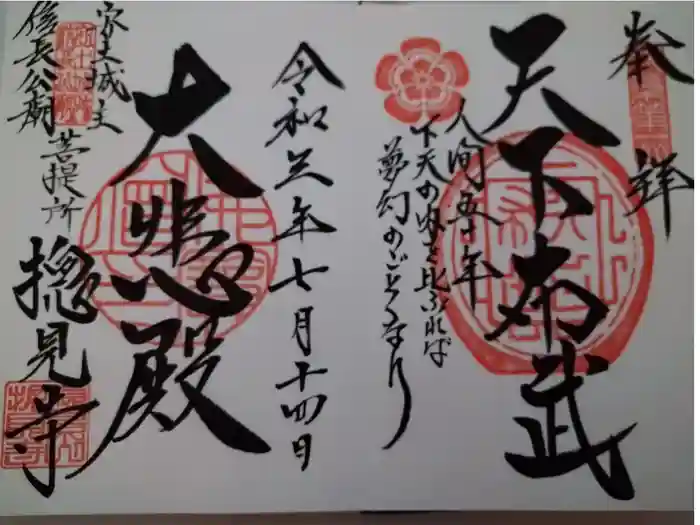 奉拝
天下布武
人間五十年
下天の内を比ぶれば
夢幻のごとくなり
令和三年七月十四日
大悲殿
安土城主
信長公廟
菩提所
摠見寺